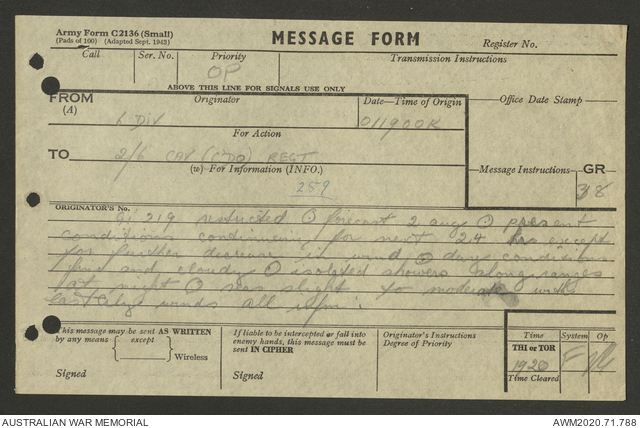 Army Form C2136 (Small)
(Pads of 100) (Adapted Sept. 1942)
MESSAGE FORM
Register No.
Call
Ser. No.
Priority
OP
Transmission Instructions
ABOVE THIS LINE FOR SIGNALS USE ONLY
FROM
(A)
Originator
Date—Time of Origin
Office Date Stamp
6 Div
011900K
For Action
TO
2/6 CAV (CDO) REGT
(w)—For Information (INFO.)
Message Instructions
GR
38
259
ORIGINATOR'S No.
219 restricted ⊙ forecast 2 aug ⊙ present
conditions continuing for next 24 hrs except
for further decrease in wind ⊙ day conditions
fine and cloudy ⊙ isolated showers along ranges
at night ⊙ seas slight to moderate with
winds all
This message may be sent AS WRITTEN
by any means except
Wireless
Signed
If liable to be intercepted or fall into
enemy hands, this message must be
sent IN CIPHER
Signed
Originator's Instructions
Degree of Priority
Time
System
Op
THI or TOR
1920
Time Cleared
AUSTRALIAN WAR MEMORIAL
AWM2020.71.788